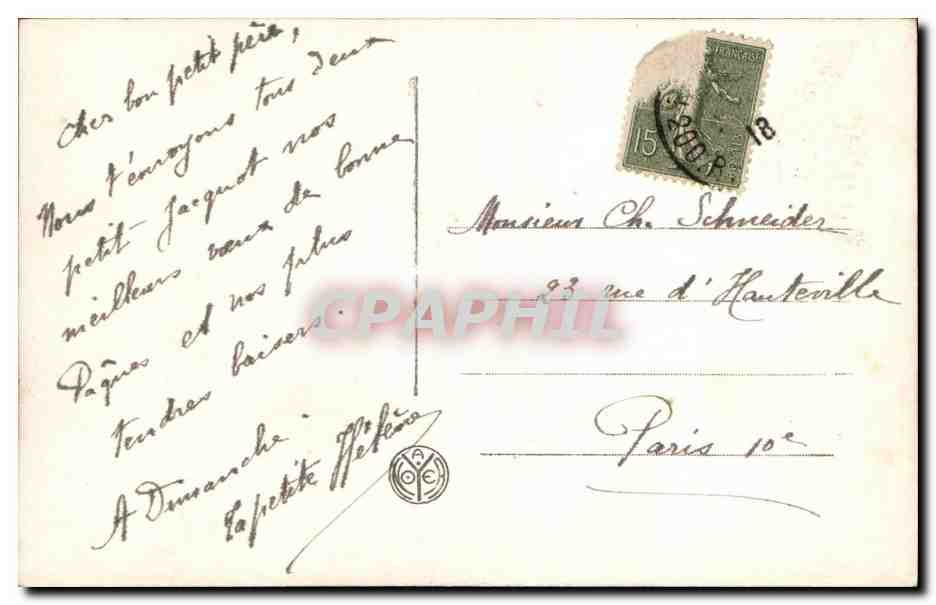 Cher bon petit père,
Nous t'envoyons tous deux
petit Jacquot nos
meilleurs vœux de bonne
Pâques et nos plus
tendres baisers.
A Dimanche.
Ta petite Hélène
FRANÇAISE
15
200 R.
18
Monsieur Ch. Schneider
23 rue d'Hauteville
Paris 10e
CPAPHIL